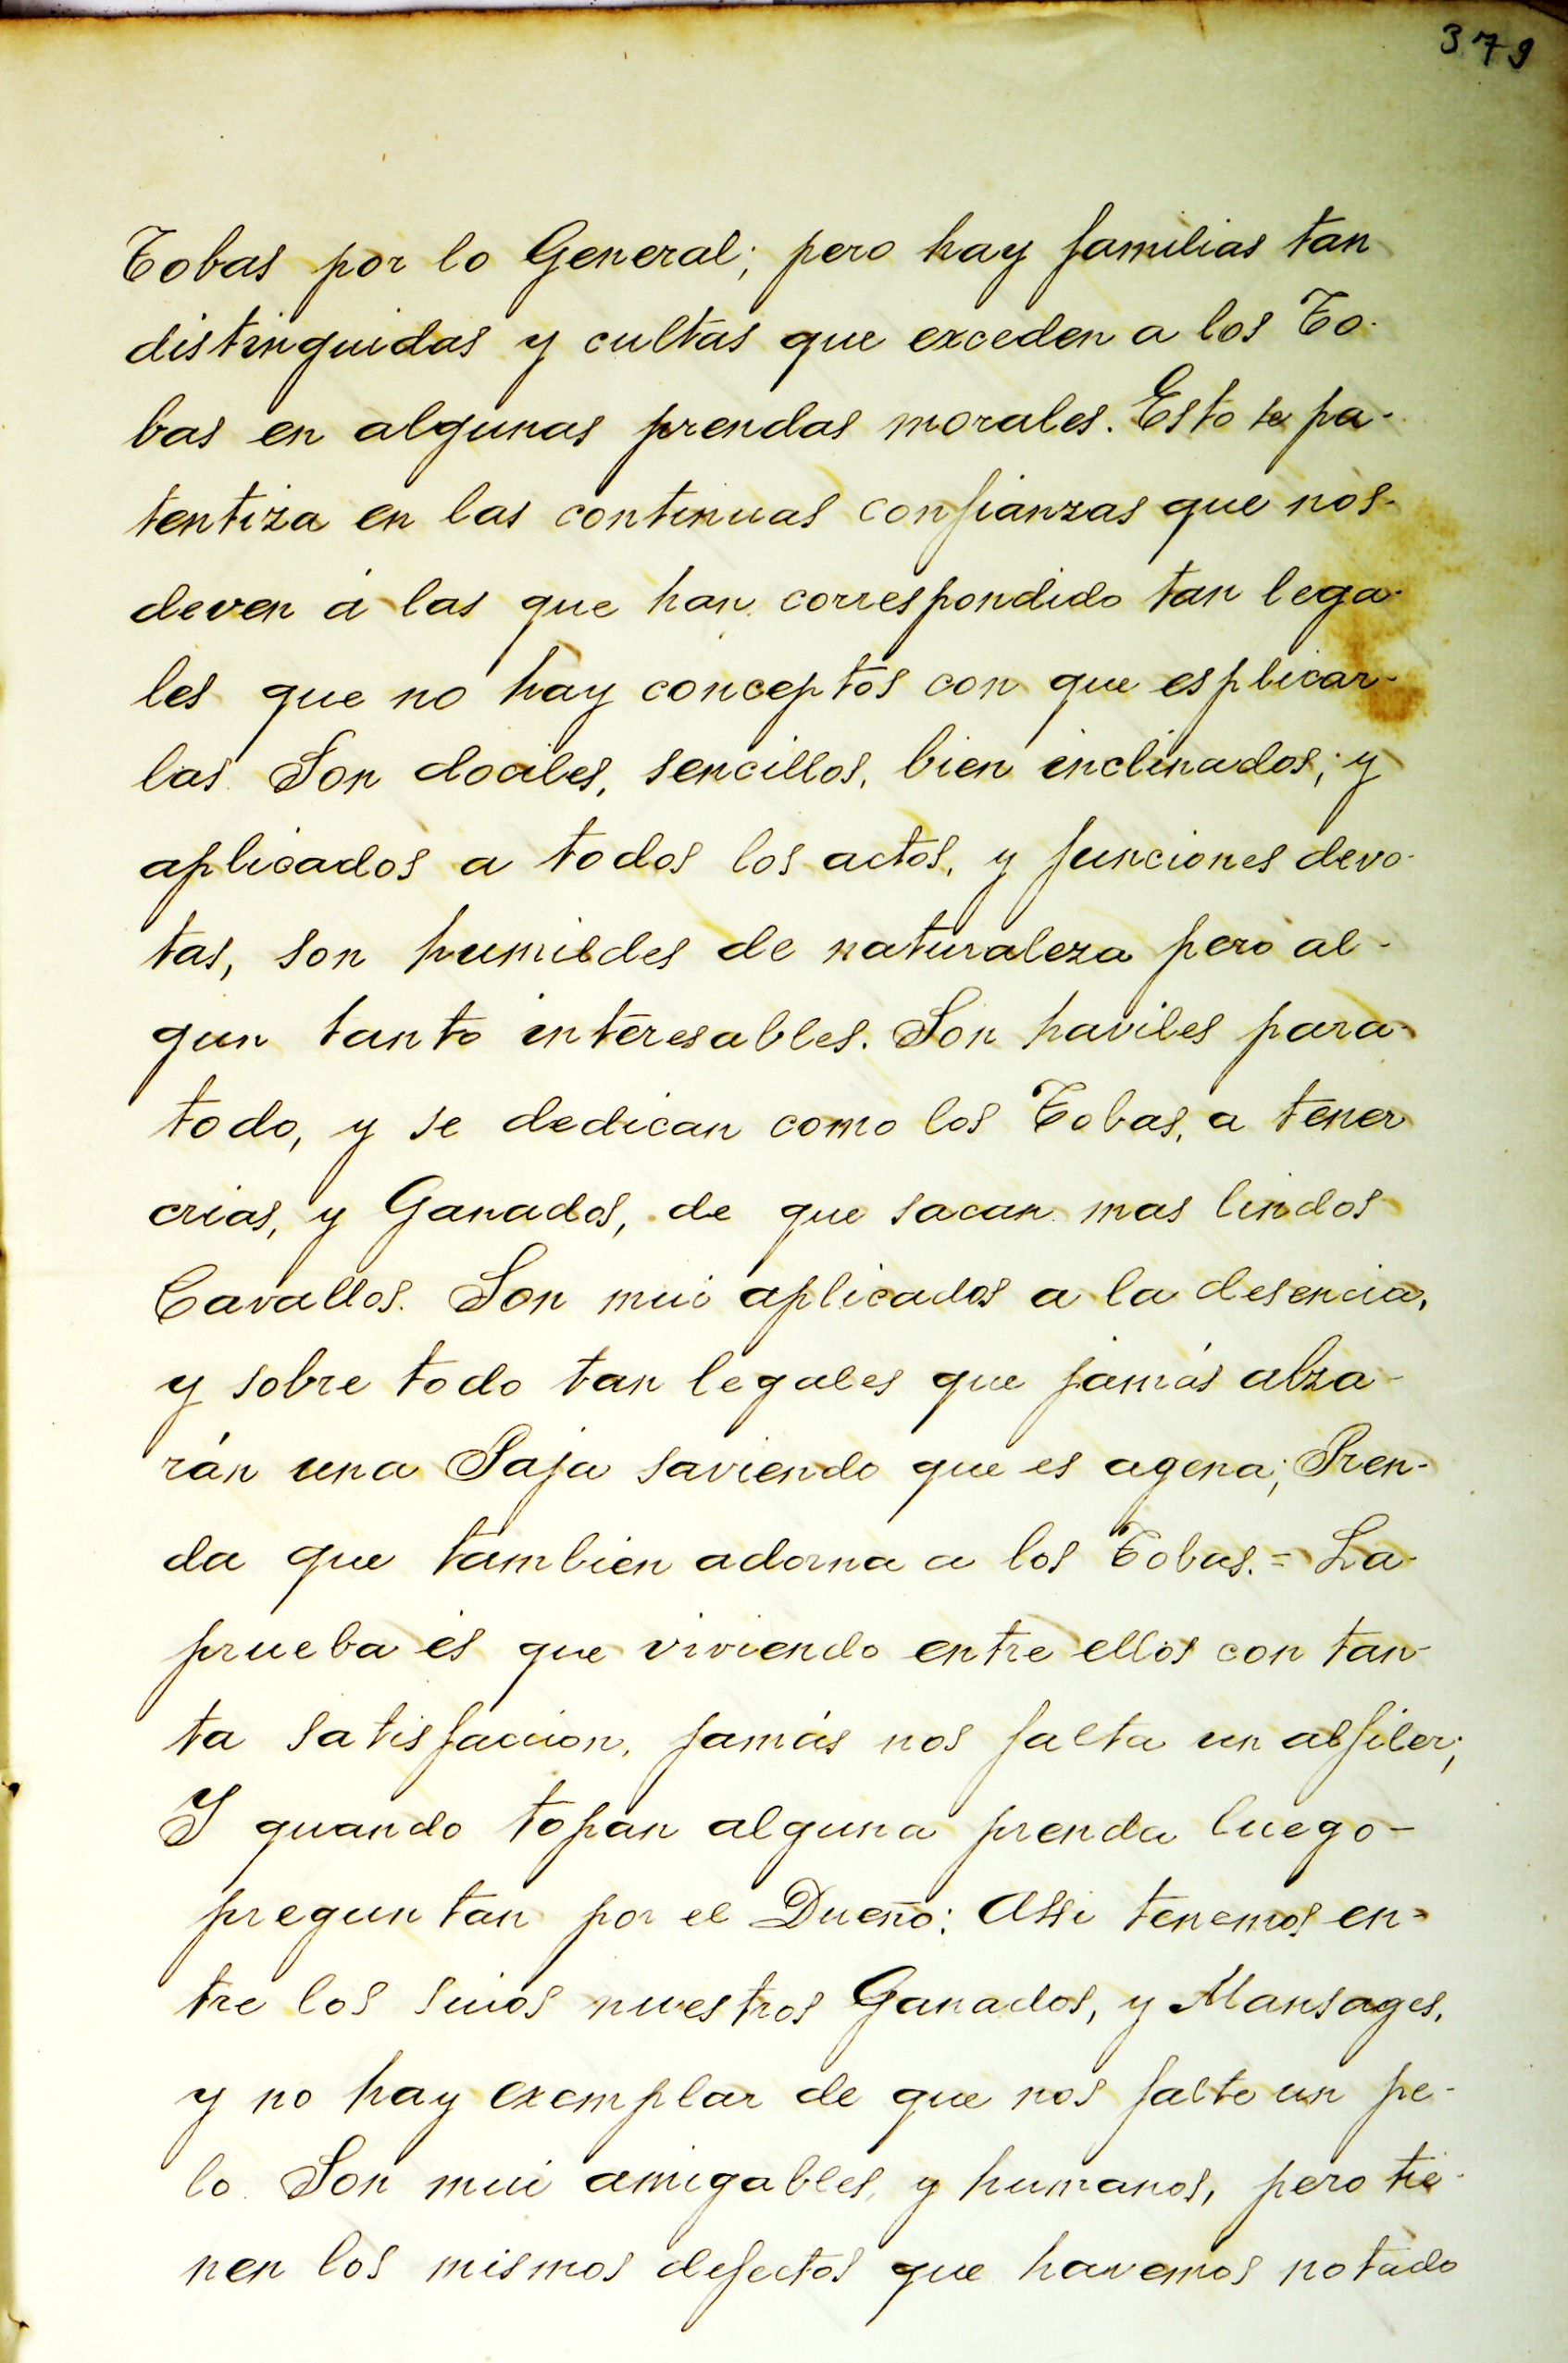 379
Tobas por lo General; pero hay familias tan
distinguidas y cultas que exceden a los To-
bas en algunas prendas morales. Esto se pa-
tentiza en las continuas confianzas que nos-
deven á las que han correspondido tan lega-
les que no hay conceptos con que esplicar-
las. Son dociles, sencillos, bien inclinados; y
aplicados a todos los actos, y funciones devo-
tas, son humildes de naturaleza pero al-
gun tanto interesables. Son haviles para-
todo, y se dedican como los Tobas, a tener
crias, y Ganados, de que sacan mas lindos
Cavallos. Son mui aplicados a la desencia,
y sobre todo tan legales que jamás alza-
rán una Paja saviendo que es agena; Pren-
da que tambien adorna a los Tobas. = La-
prueba es que viviendo entre ellos con tan-
ta satisfaccion, jamás nos falta un alfiler;
Y quando topan alguna prenda luego-
preguntan por el Dueño: Assi tenemos en=
tre los suios nuestros Ganados, y Mansages,
y no hay exemplar de que nos falte un pe-
lo. Son mui amigables, y humanos, pero tie-
nen los mismos defectos que havemos notado